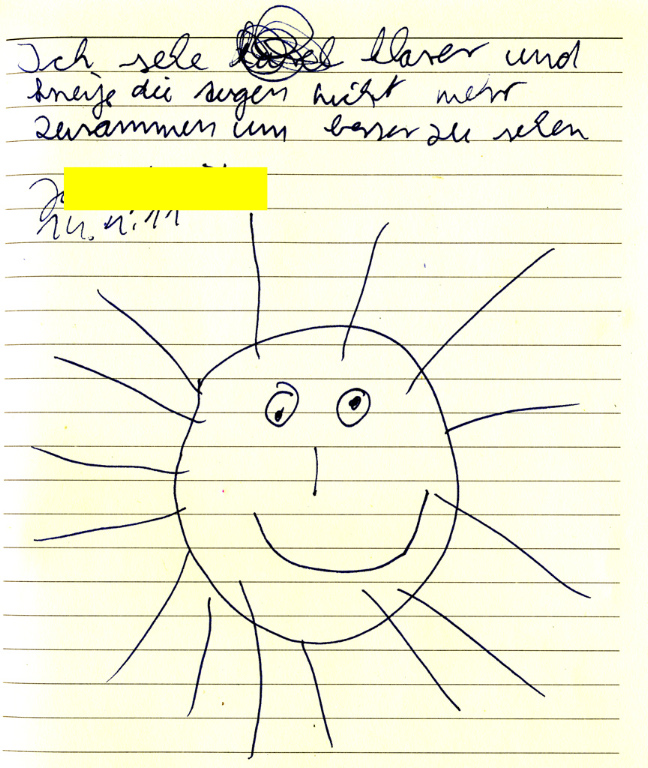 Ich sehe klarer und
kneife die augen nicht mehr
zusammen um besser zu sehen